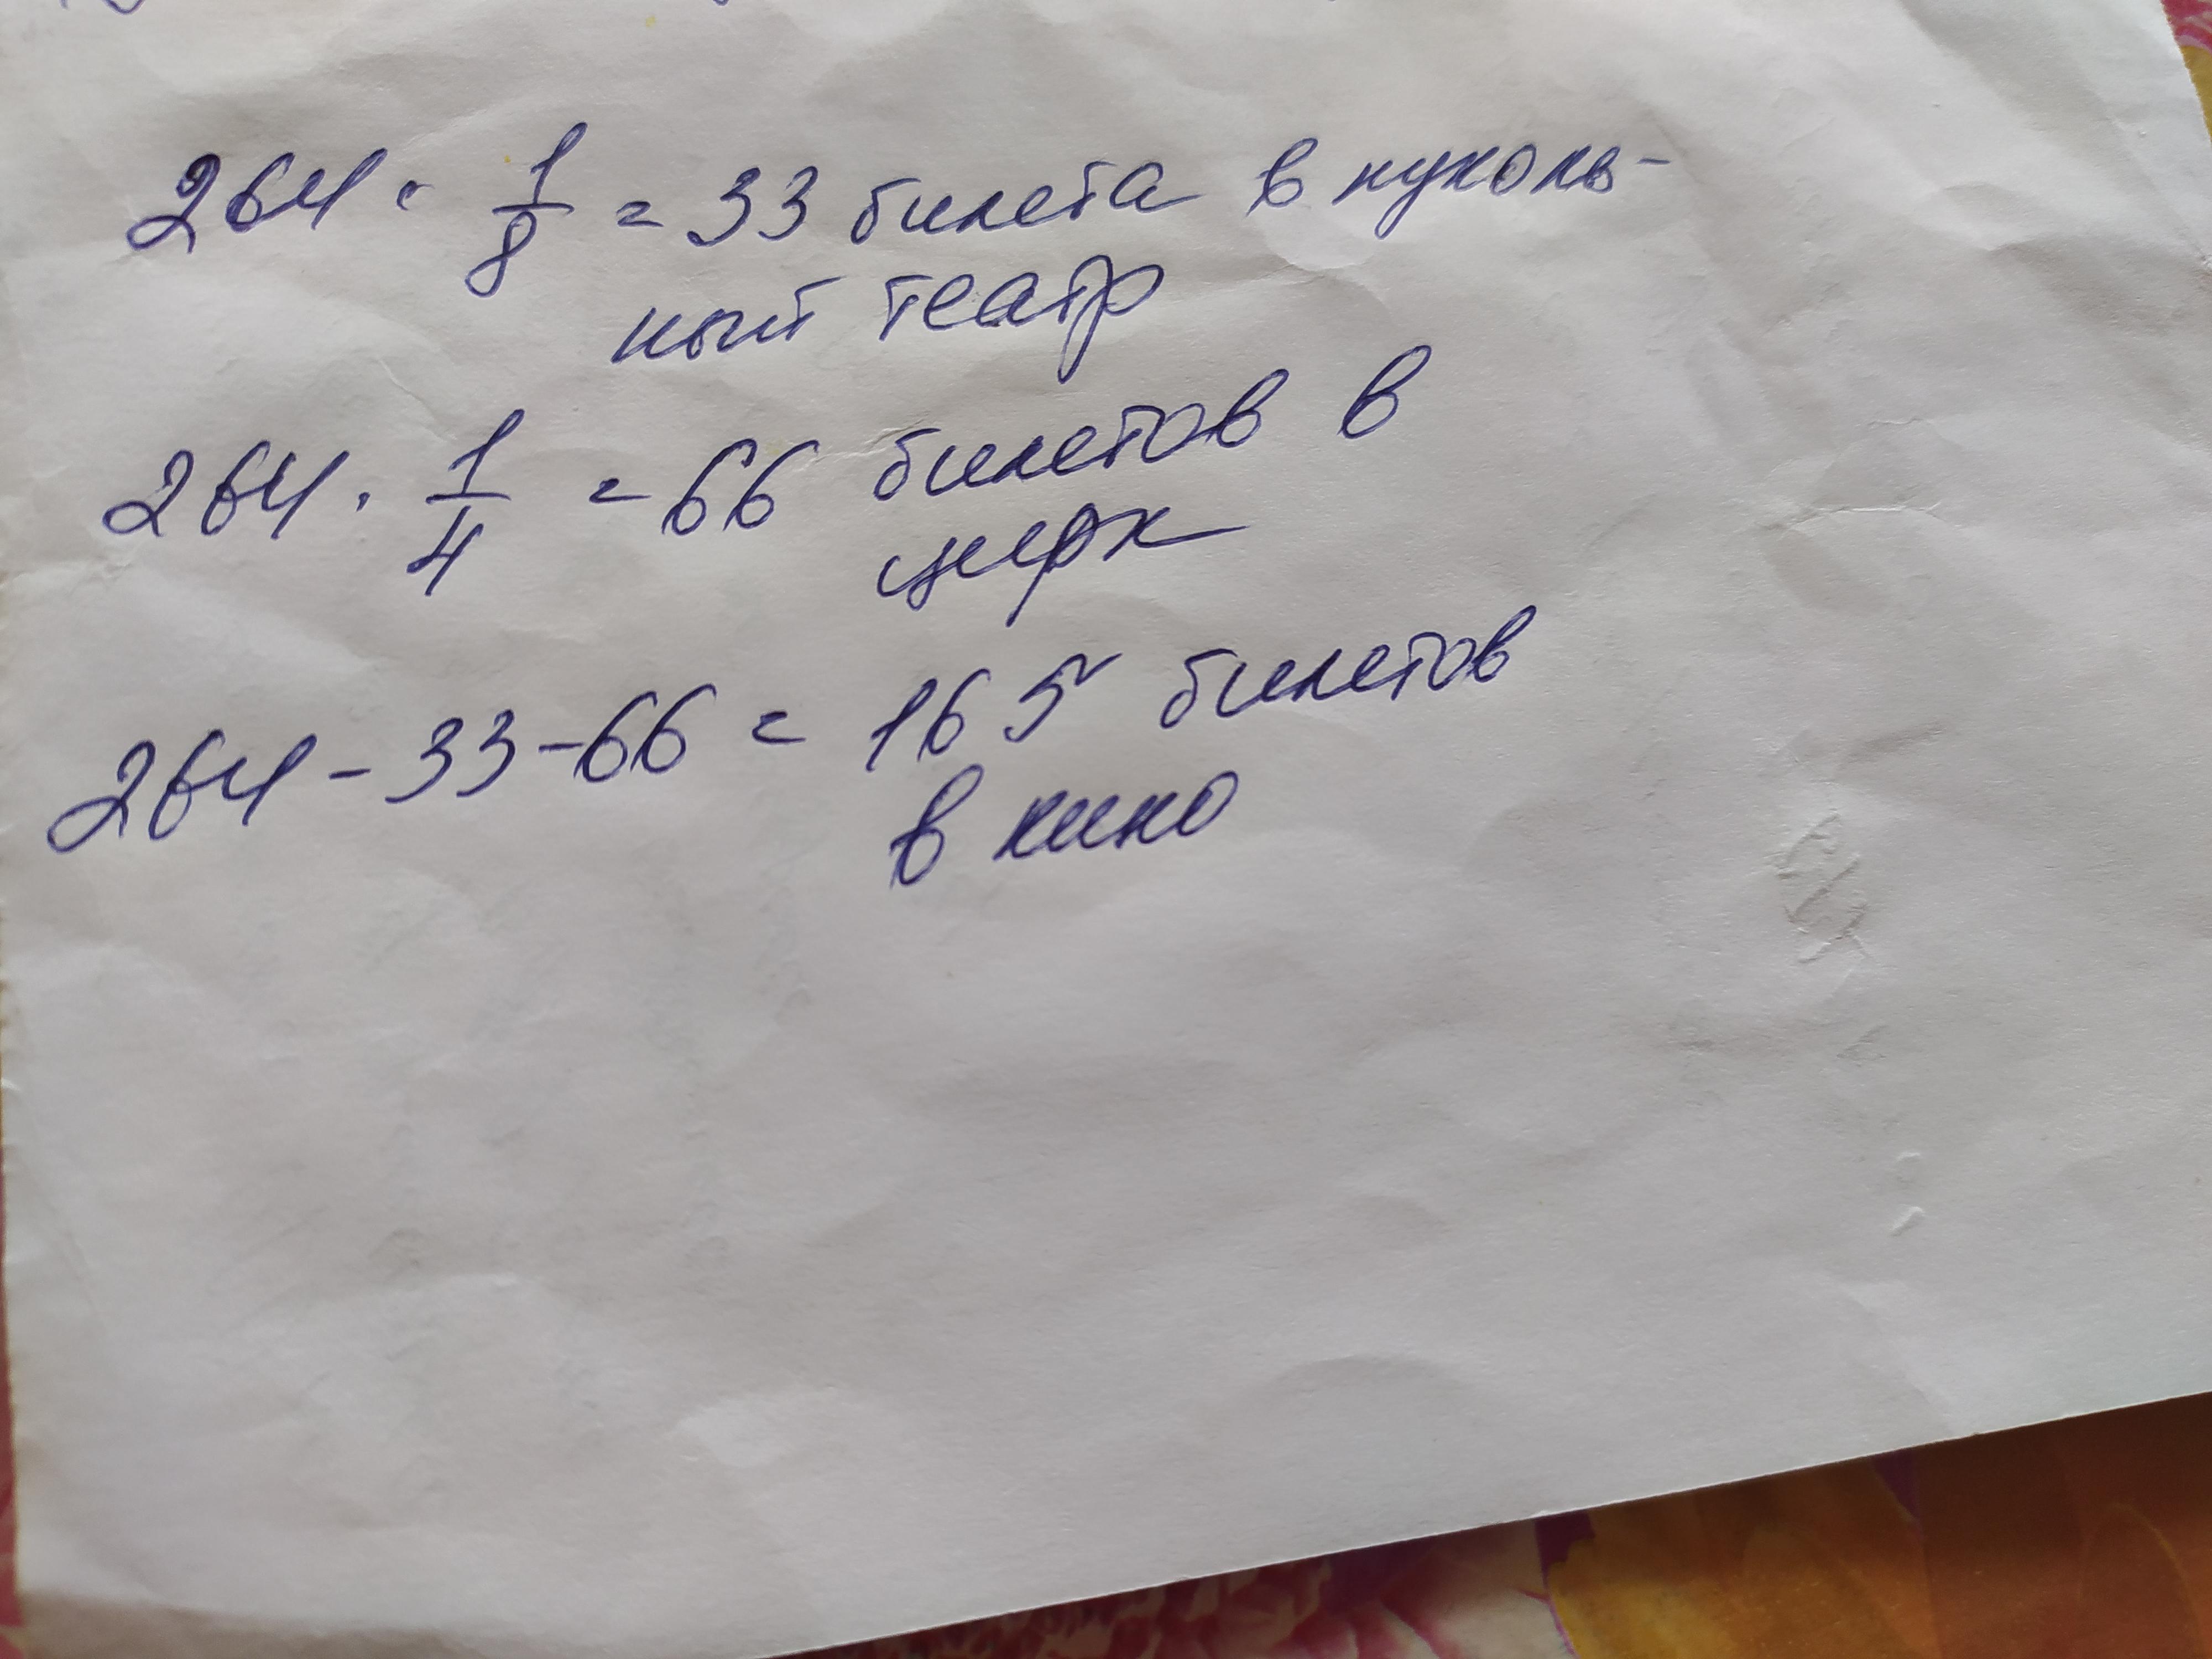 264 · 1/8 = 33 билета в куколь-
ный театр
264 · 1/4 = 66 билетов в
цирк
264 - 33 - 66 = 165 билетов
в кино